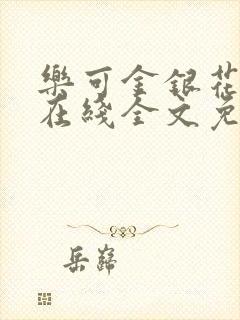 樂可金銀花
在綫全文免
岳歸